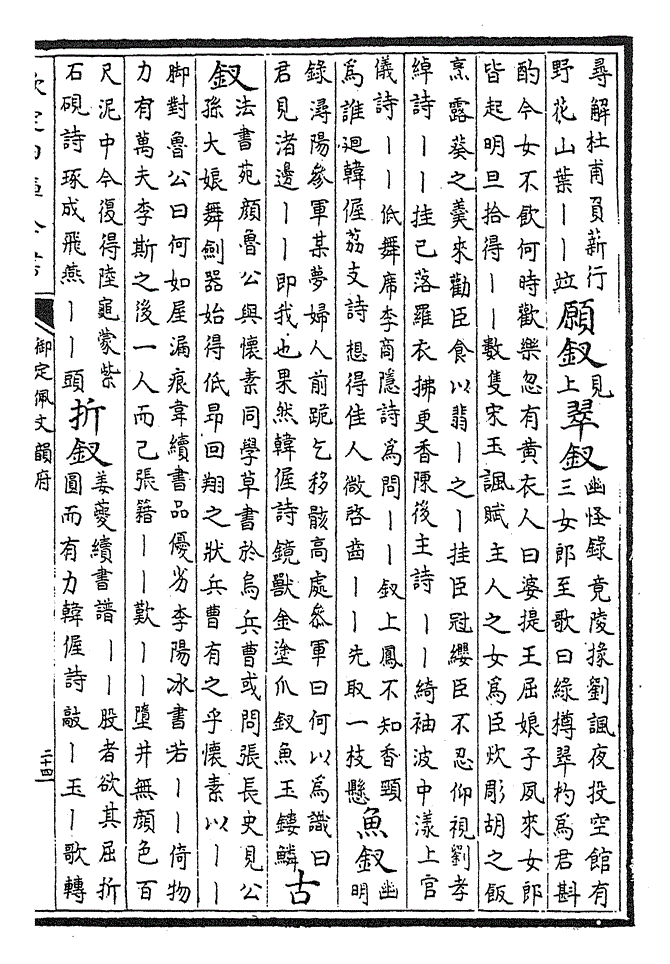 尋解杜甫負薪行
野花山葉丨丨竝
願釵
見
上
翠釵
幽怪錄竟陵掾劉諷夜投空館有
三女郎至歌曰綠樽翠杓為君斟
酌今女不飲何時歡樂忽有黃衣人曰婆提王屈娘子夙來女郎
皆起明旦拾得丨丨數隻宋玉諷賦主人之女為臣炊彫胡之飯
烹露葵之羹來勸臣食以翡丨之丨挂臣冠纓臣不忍仰視劉孝
綽詩丨丨挂已落羅衣拂更香陳後主詩丨丨綺袖波中漾上官
儀詩丨丨低舞席李商隱詩為問丨丨釵上鳳不知香頸
為誰迴韓偓荔支詩想得佳人微啓齒丨丨先取一枝懸
魚釵
幽
明
錄潯陽參軍某夢婦人前跪乞移骸高處參軍曰何以為識曰
君見渚邊丨丨即我也果然韓偓詩鏡獸金塗爪釵魚玉鏤鱗
古
釵
法書苑顏魯公與懷素同學草書於鳥兵曹或問張長史見公
孫大娘舞劍器始得低昂回翔之狀兵曹有之乎懷素以丨丨
脚對魯公曰何如屋漏痕韋續書品優劣李陽冰書若丨丨倚物
力有萬夫李斯之後一人而已張籍丨丨歎丨丨墮井無顏色百
尺泥中今復得陸龜蒙紫
石硯詩琢成飛燕丨丨頭
折釵
姜夔續書譜丨丨股者欲其屈折
圓而有力韓偓詩敲丨玉丨歌轉
御定佩文韻府
二十四